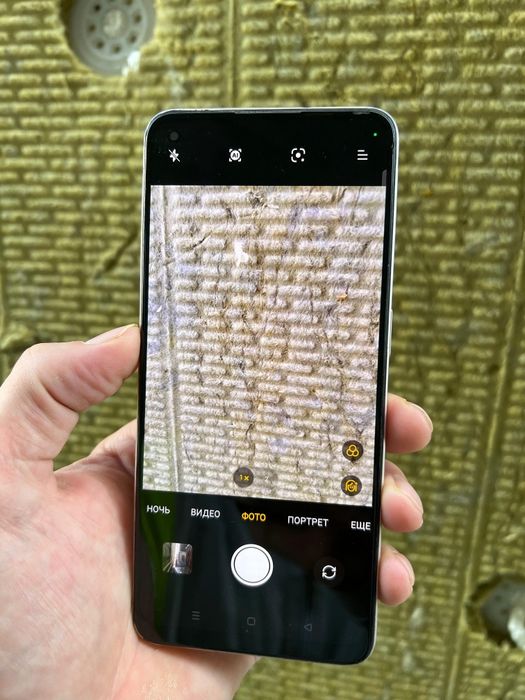 AI
1×
НОЧЬ ВИДЕО ФОТО ПОРТРЕТ ЕЩЕ